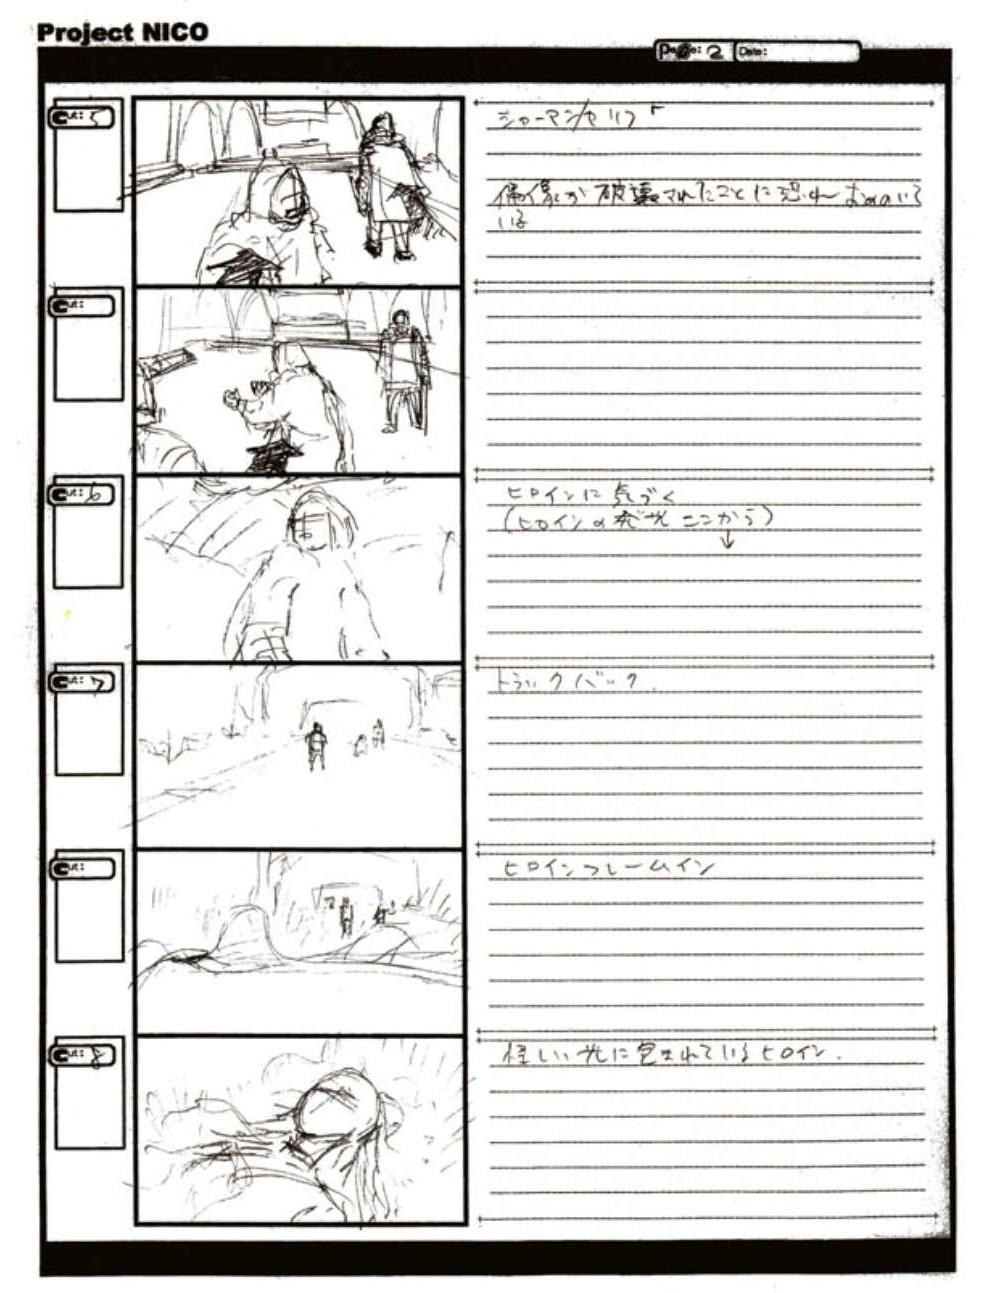 Project NICO
Page: 2 Date:
Cut: 5
シャーマンセリフ「
偶像が破壊されたことに恐れおののいて
いる
Cut:
Cut: 6
ヒロインに気づく
(ヒロインの発光 ここから)
↓
Cut: 7
トラックバック.
Cut:
ヒロインフレームイン
Cut: 8
怪しい光に包まれているヒロイン.